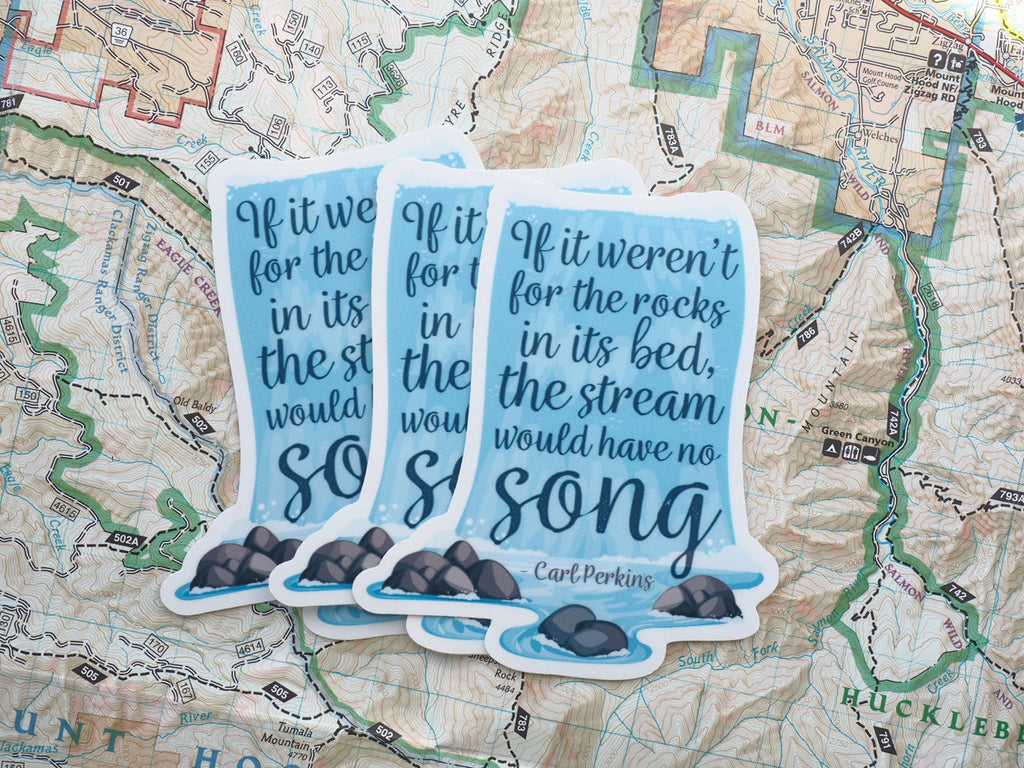 If it weren't
for the rocks
in its bed,
the stream
would have no
song
- Carl Perkins
If it we
for the
in its
the st
would
so
If it
for t
in
the
wou
s
Zigzag
Mount
Hood NF/
Zigzag RD
Mount Hood
Golf course
Welches
BLM
SALMON
SALMON
RIVER
WILD
AND
RIDGE
Creek
Creek
36
50
180
140
115
113
106
155
781
501
EAGLE CREEK
Zigzag Ranger District
Clackamas Ranger District
4615
4615
150
Old Baldy
502
502A
Eagle
Creek
793
793A
742B
786
MOUNTAIN
3580
Green Canyon
742A
2618
742
SALMON
WILD
AND
Creek
South Fork
HUCKLEBE
70
4614
167
505
505
River
Tumala
Mountain
4770
502
Rock
4484
783
UNT
HO
150